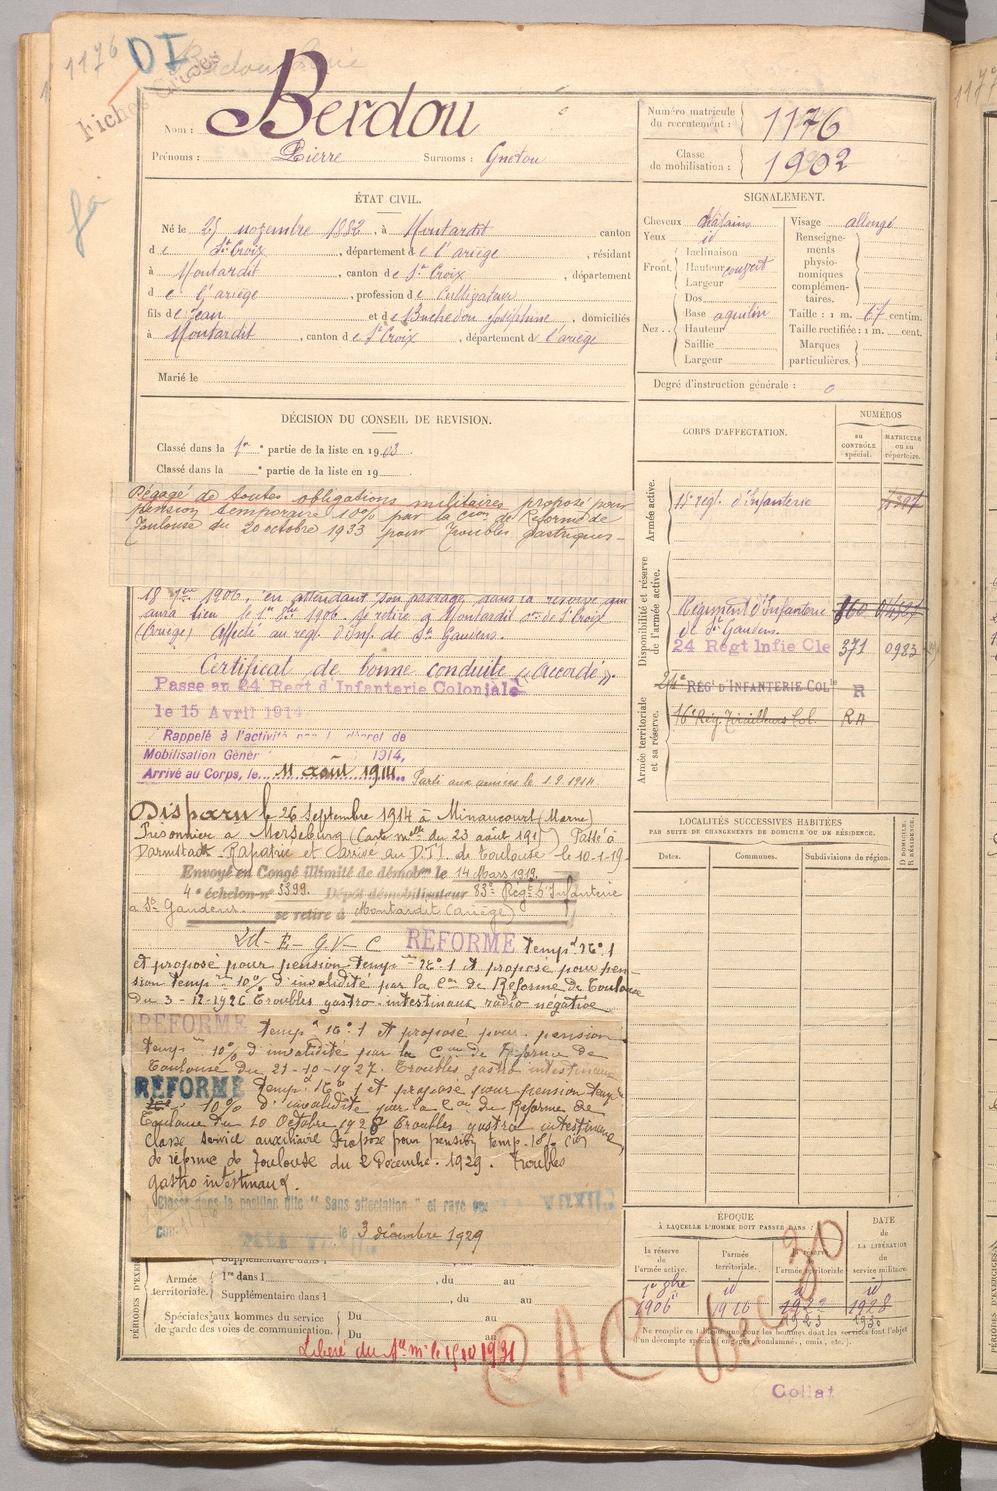 1176 DI
Fiches
Nom : Berdou
Prénoms : Pierre Surnoms : Gnetou
Numéro matricule du recrutement : 1176
Classe de mobilisation : 1902
ÉTAT CIVIL.
Né le 25 novembre 1882, à Montardit canton
d e St Croix, département de l'ariège, résidant
à Montardit, canton de St Croix, département
d e l'ariège, profession de Cultivateur
fils de Jean et de Buchedou Joséphine, domiciliés
à Montardit, canton de St Croix, département de l'ariège
Marié le
SIGNALEMENT.
Cheveux châtains
Yeux id
Front. Inclinaison
Hauteur couvert
Largeur
Nez.. Dos
Base aquilin
Hauteur
Saillie
Largeur
Visage allongé
Renseignements physionomiques complémentaires.
Taille : 1 m. 67 centim.
Taille rectifiée : 1 m. cent.
Marques particulières.
Degré d'instruction générale : 0
DÉCISION DU CONSEIL DE REVISION.
Classé dans la 1re partie de la liste en 1903
Classé dans la e partie de la liste en 19
Dégagé de toutes obligations militaires proposé pour
pension temporaire 10% par la Cion de Réforme de
Toulouse du 20 octobre 1933 pour Troubles gastriques
18 7bre 1906, en attendant son passage dans la réserve qui
aura lieu le 1er 8bre 1906. Se retire à Montardit con de St Croix
(Ariège) Affecté au régt d'Inf. de St Gaudens.
Certificat de bonne conduite « Accordé ».
Passe au 24 Regt d'Infanterie Coloniale
le 15 Avril 1914
Rappelé à l'activité décret de
Mobilisation Génér 1914,
Arrivé au Corps, le 11 août 1914. Parti aux armées le 1.9.1914
Disparu le 26 Septembre 1914 à Minaucourt (Marne)
Prisonnier à Merseburg (Carte melle du 23 août 191) Passé à
Darmstadt. Rapatrié et arrivé au D.T.I. de Toulouse le 10-1-19
Envoyé en Congé illimité de démobon le 14 Mars 1919.
4e échelon no 3399. Dépôt démobilisateur 83e Régt d'Infanterie
a St Gaudens se retire à Montardit (Ariège)
REFORME Tempre No 1
et proposé pour pension Temp No 1 et proposé pour pen-
sion Tempre 10% d'invalidité par la Con de Réforme de Toulouse
du 3-12-1926 Troubles gastro-intestinaux radio négative
REFORME Tempre No 1 et proposé pour pension
Temp 10% d'invalidité par la Con de Réforme de
Toulouse du 21-10-1927. Troubles gastro intestinaux
REFORME Tempre No 1 et proposé pour pension temp
10% d'invalidité par la Con de Réforme de
Toulouse du 10 Octobre 1928 Troubles gastro intestinaux
Classé service auxiliaire Proposé pour pension temp. 10% Cion
de réforme de Toulouse du 2 Décembre 1929. Troubles
gastro intestinaux.
Classé dans la position dite "Sans affectation" et rayé
le 3 décembre 1929
CORPS D'AFFECTATION.
NUMÉROS
au CONTRÔLE spécial.
MATRICULE ou au répertoire.
Armée active.
régt d'Infanterie
Disponibilité et réserve de l'armée active.
Régiment d'Infanterie
de St Gaudens.
24 Régt Infie Cle 371 0983
Armée territoriale et sa réserve.
24e RÉGt D'INFANTERIE COLle R
16e Rég. Tirailleurs Col. RA
LOCALITÉS SUCCESSIVES HABITÉES
PAR SUITE DE CHANGEMENTS DE DOMICILE OU DE RÉSIDENCE.
Dates. Communes. Subdivisions de région. D DOMICILE. R RÉSIDENCE.
PÉRIODES D'EXER
Supplémentaire dans l
Armée territoriale. 1re dans l , du au
Supplémentaire dans l , du au
Spéciales aux hommes du service de garde des voies de communication. Du au
Du au
Libéré du Sce mre le 15 10 1931
ÉPOQUE
À LAQUELLE L'HOMME DOIT PASSER DANS :
DATE de LA LIBÉRATION du service militaire.
la réserve de l'armée active. l'armée territoriale. la réserve l'armée territoriale
1er 8bre 1906 id 1916 id 1922 1923 id 1928 1930
Ne remplir en que pour les hommes dont les services font l'objet
d'un décompte spécial (engagés, condamnés, omis, etc.).
30
CAC
Collat